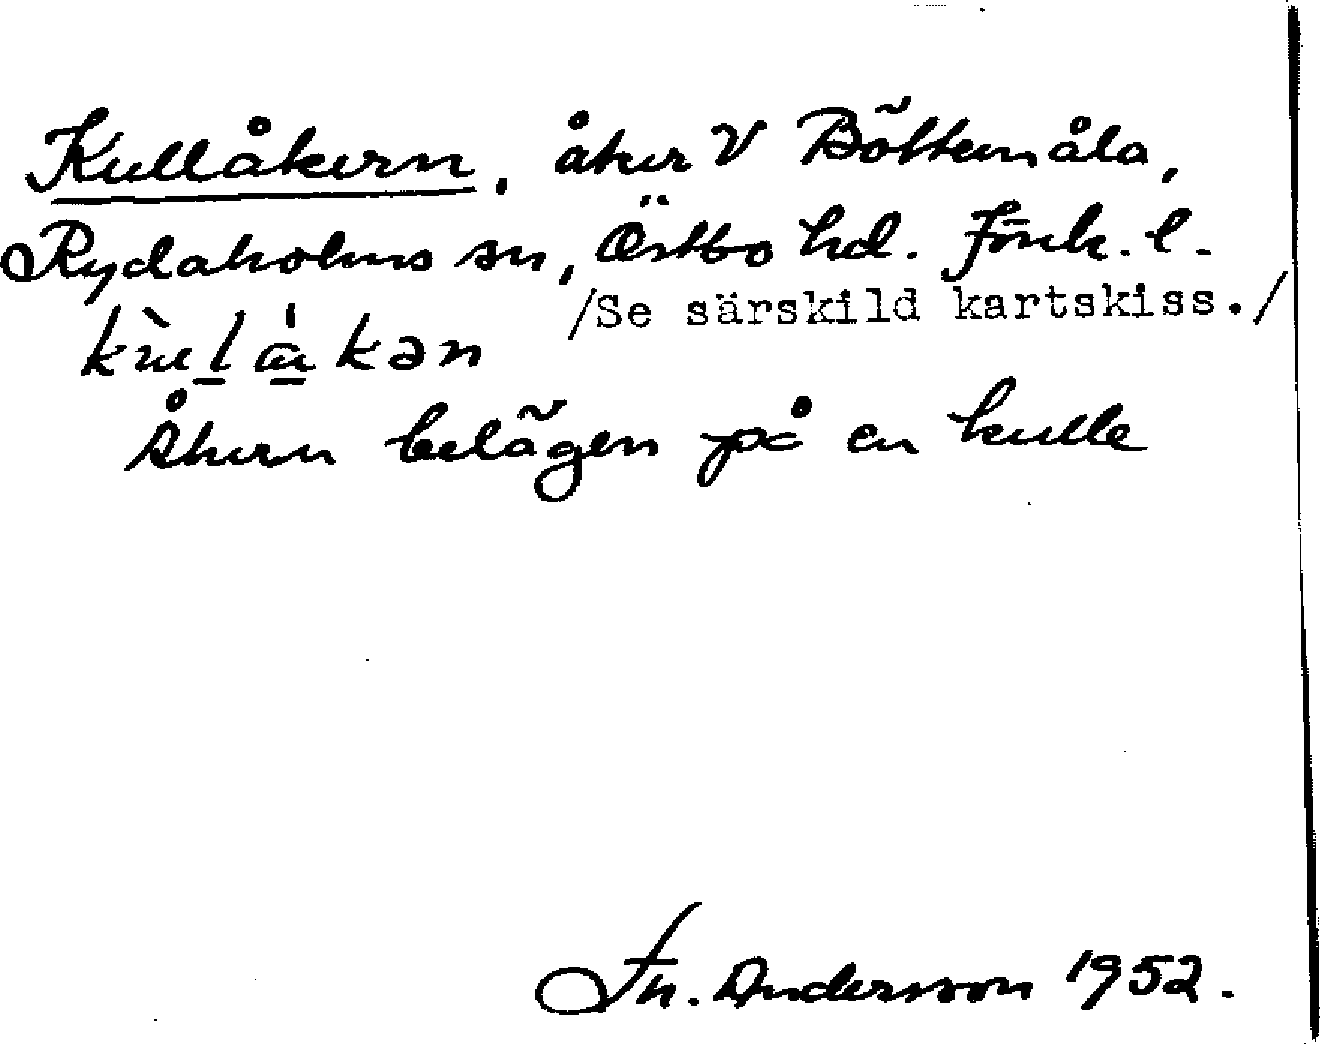 Kullåkern, åker V Böttemåla,
Rydaholms sn, Östbo hd. Jönk. l.
/Se särskild kartskiss./
Åkern belägen på en kulle
Th. Andersson 1952.